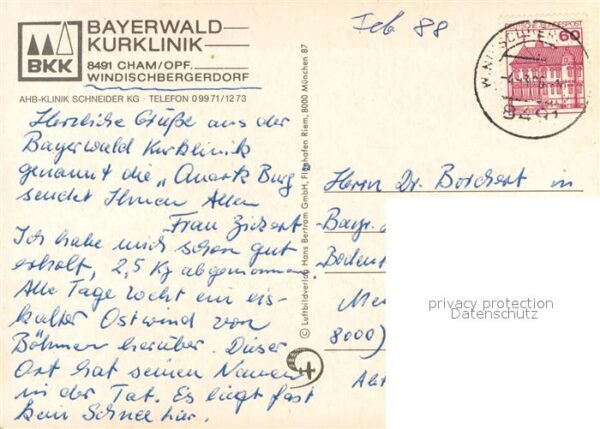 BAYERWALD
KURKLINIK
BKK
8491 CHAM/OPF.
WINDISCHBERGERDORF
AHB-KLINIK SCHNEIDER KG · TELEFON 0 99 71/12 73
Feb 88
DEUTSCHE BUNDESPOST
60
8491
Herzliche Grüße aus der
Bayerwald Kurklinik
genannt die „Quark Burg
sendet Ihnen Allen
Frau Zickert
Ich habe mich schon gut
erholt, 2,5 Kg abgenommen
Alle Tage weht ein eis-
kalter Ostwind von
Böhmen herüber. Dieser
Ort hat seinen Namen
in der Tat. Es liegt fast
kein Schnee hier.
© Luftbildverlag Hans Bertram GmbH, Flughafen Riem, 8000 München 87
Herrn Dr. Borchert in
Bayr.
8000)
privacy protection
Datenschutz